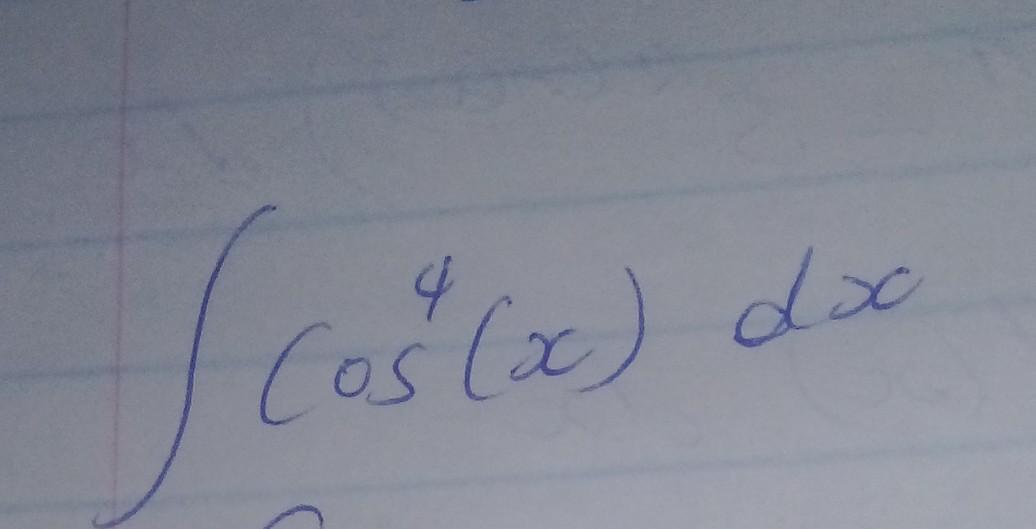 ∫ cos⁴(x) dx